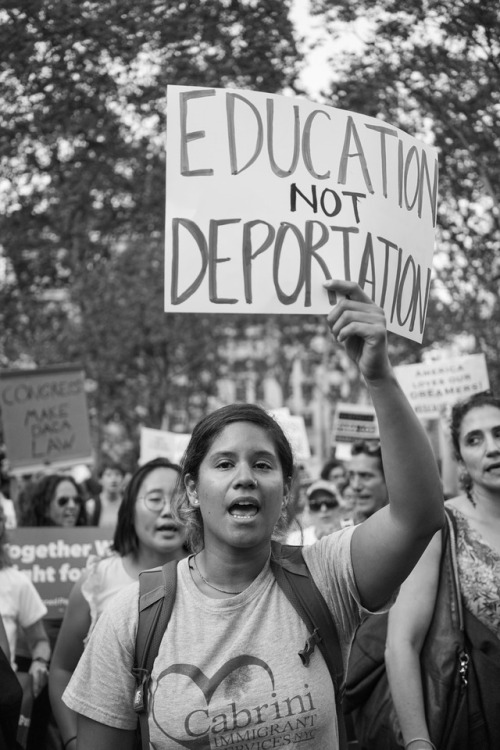 EDUCATION
NOT
DEPORTATION
CONGRESS
MAKE
DACA
LAW
AMERICA
LOVES OUR
DREAMERS!
Together
ght for
Cabrini
IMMIGRANT
SERVICES NYC